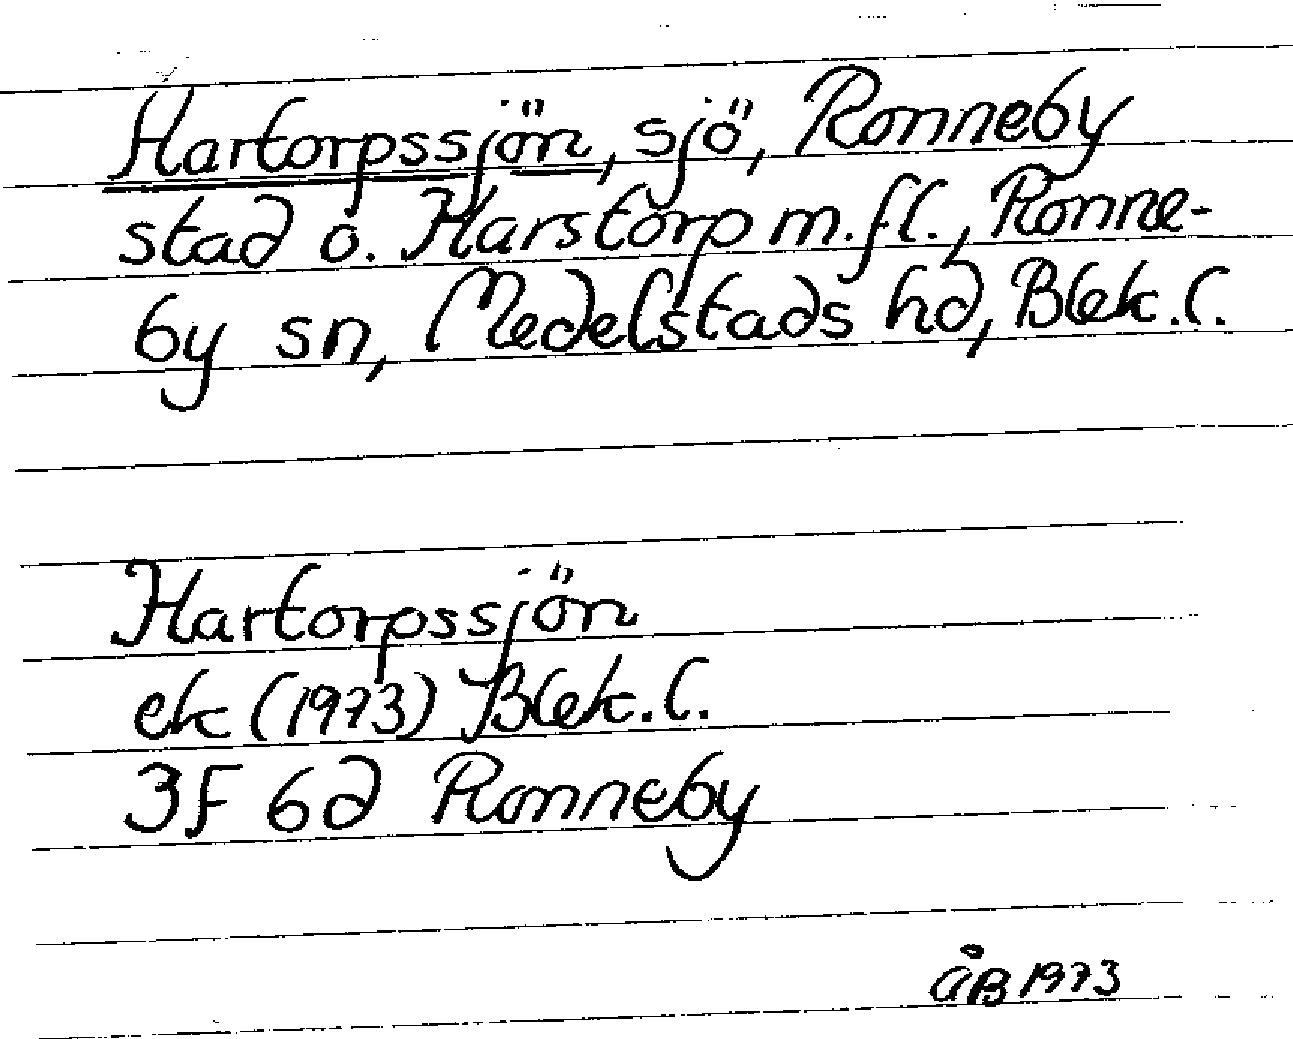 Hartorpssjön, sjö, Ronneby
stad o. Harstorp m.fl., Ronne-
by sn, Medelstads hd, Blek.l.
Hartorpssjön
ek (1973) Blek.l.
3F 6d Ronneby
ÅB 1973